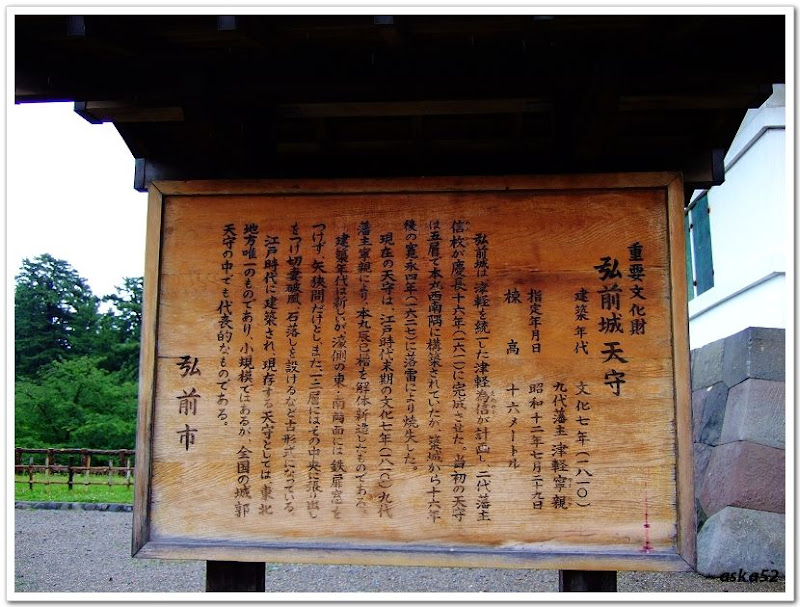 重要文化財
弘前城天守
建築年代　文化七年(一八一〇)
九代藩主 津軽寧親
指定年月日　昭和十二年七月二十九日
棟高　十六メートル
弘前城は、津軽を統一した津軽為信が計画し、二代藩主
信枚が慶長十六年(一六一一)に完成させた。当初の天守
は五層で本丸西南隅に構築されていたが、築城から十六年
後の寛永四年(一六二七)に落雷により焼失した。
現在の天守は、江戸時代末期の文化七年(一八一〇)九代
藩主寧親により、本丸辰巳櫓を解体新造したものである。
建築年代は新しいが、濠側の東・南両面には、鉄扉窓を
つけず、矢狭間だけとし、また、一、二層にはその中央に張り出し
をつけ、切妻破風、石落しを設けるなど古形式になっている。
江戸時代に建築され、現存する天守としては、東北
地方唯一のものであり、小規模ではあるが、全国の城郭
天守の中でも代表的なものである。
弘前市
aska52